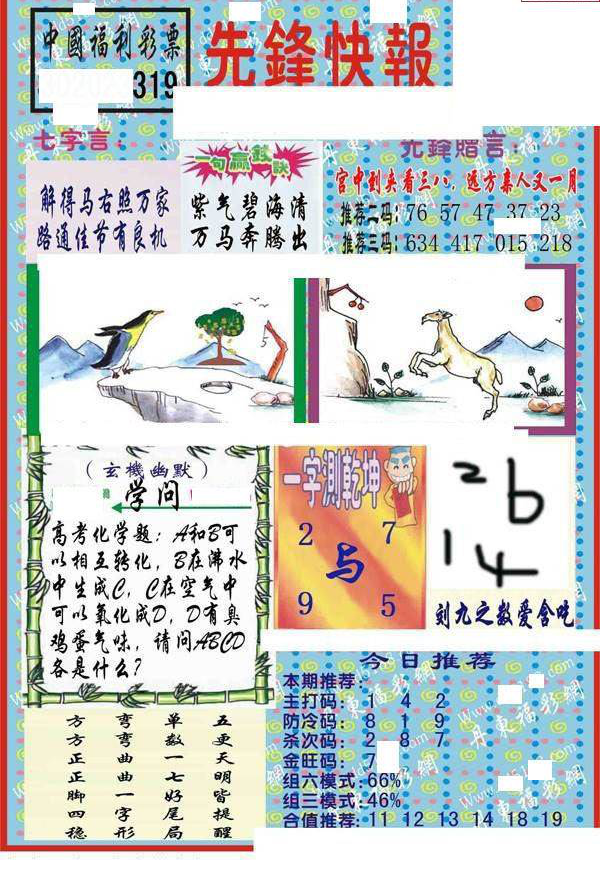 中國福利彩票
319
先鋒快報
七字言：
解得马右照万家
路通佳节有良机
一句赢钱訣
紫气碧海清
万马奔腾出
先鋒贈言：
宫中到实看三八，远方亲人又一月
推荐二码：76 57 47 37 23
推荐三码：634 417 015 218
（玄機幽默）
学问
高考化学题：A和B可
以相互转化，B在沸水
中生成C，C在空气中
可以氧化成D，D有臭
鸡蛋气味，请问ABCD
各是什么？
一字測乾坤
2 7
与
9 5
2 b
1 4
刘九之数爱含吃
方方正正脚四稳
弯弯曲曲一字形
单数一七好尾局
五更天明皆提醒
今日推荐
本期推荐：
主打码：1 4 2
防冷码：8 1 9
杀次码：2 8 7
金旺码：7
组六模式：66%
组三模式：46%
合值推荐：11 12 13 14 18 19
丹東福彩網